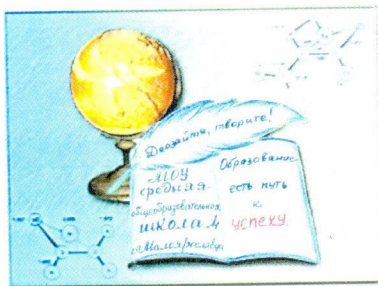 Дерзайте, творите!
МОУ
средняя
общеобразовательная
школа 4
г. Малоярославца
Образование
есть путь
к
успеху.